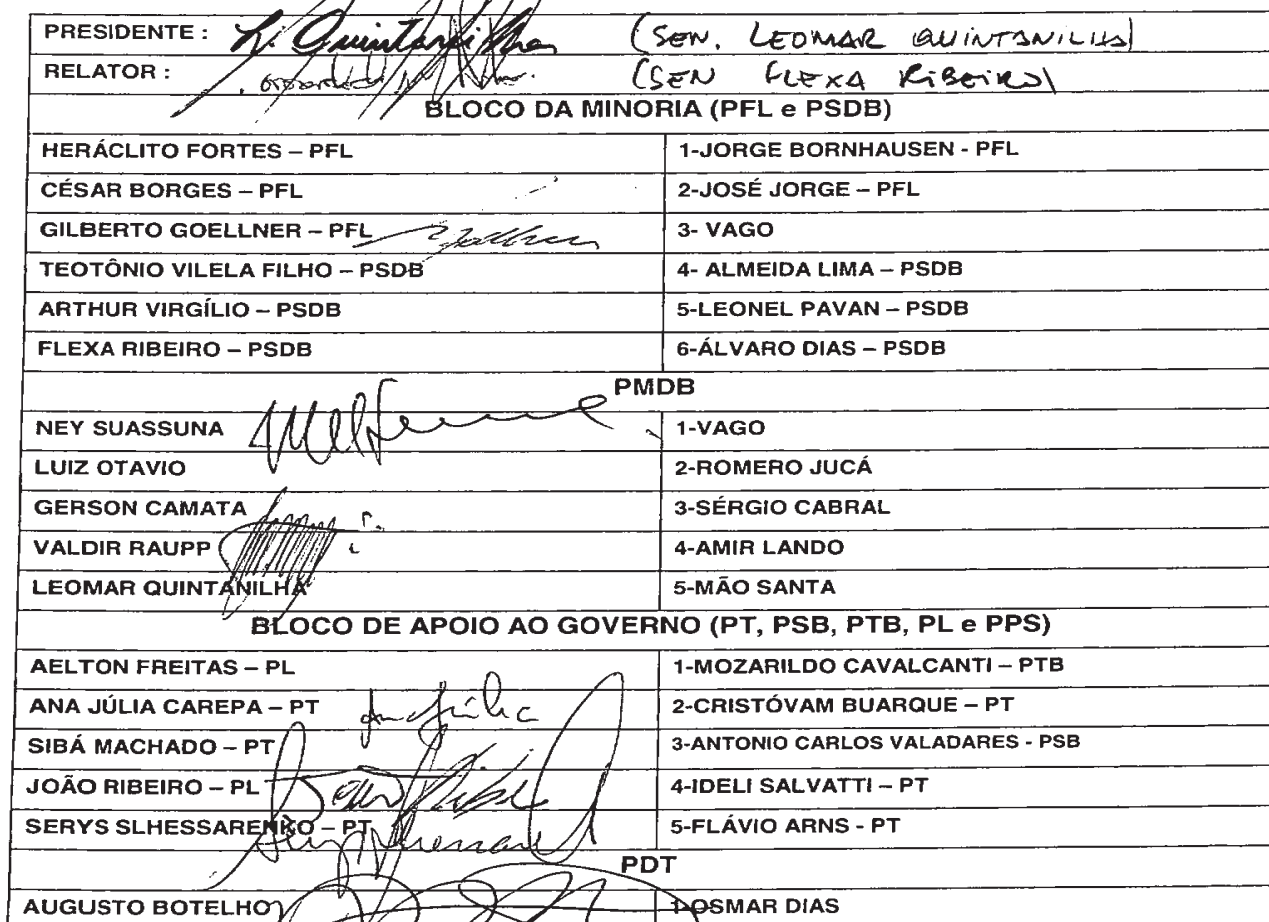 PRESIDENTE : L. Quintanilha (SEN. LEOMAR QUINTANILHA)
RELATOR : (SEN FLEXA RIBEIRO)
BLOCO DA MINORIA (PFL e PSDB)
HERÁCLITO FORTES – PFL 1-JORGE BORNHAUSEN - PFL
CÉSAR BORGES – PFL 2-JOSÉ JORGE – PFL
GILBERTO GOELLNER – PFL 3- VAGO
TEOTÔNIO VILELA FILHO – PSDB 4- ALMEIDA LIMA – PSDB
ARTHUR VIRGÍLIO – PSDB 5-LEONEL PAVAN – PSDB
FLEXA RIBEIRO – PSDB 6-ÁLVARO DIAS – PSDB
PMDB
NEY SUASSUNA 1-VAGO
LUIZ OTAVIO 2-ROMERO JUCÁ
GERSON CAMATA 3-SÉRGIO CABRAL
VALDIR RAUPP 4-AMIR LANDO
LEOMAR QUINTANILHA 5-MÃO SANTA
BLOCO DE APOIO AO GOVERNO (PT, PSB, PTB, PL e PPS)
AELTON FREITAS – PL 1-MOZARILDO CAVALCANTI – PTB
ANA JÚLIA CAREPA – PT Ana Júlia 2-CRISTÓVAM BUARQUE – PT
SIBÁ MACHADO – PT 3-ANTONIO CARLOS VALADARES - PSB
JOÃO RIBEIRO – PL 4-IDELI SALVATTI – PT
SERYS SLHESSARENKO – PT 5-FLÁVIO ARNS - PT
PDT
AUGUSTO BOTELHO 1-OSMAR DIAS